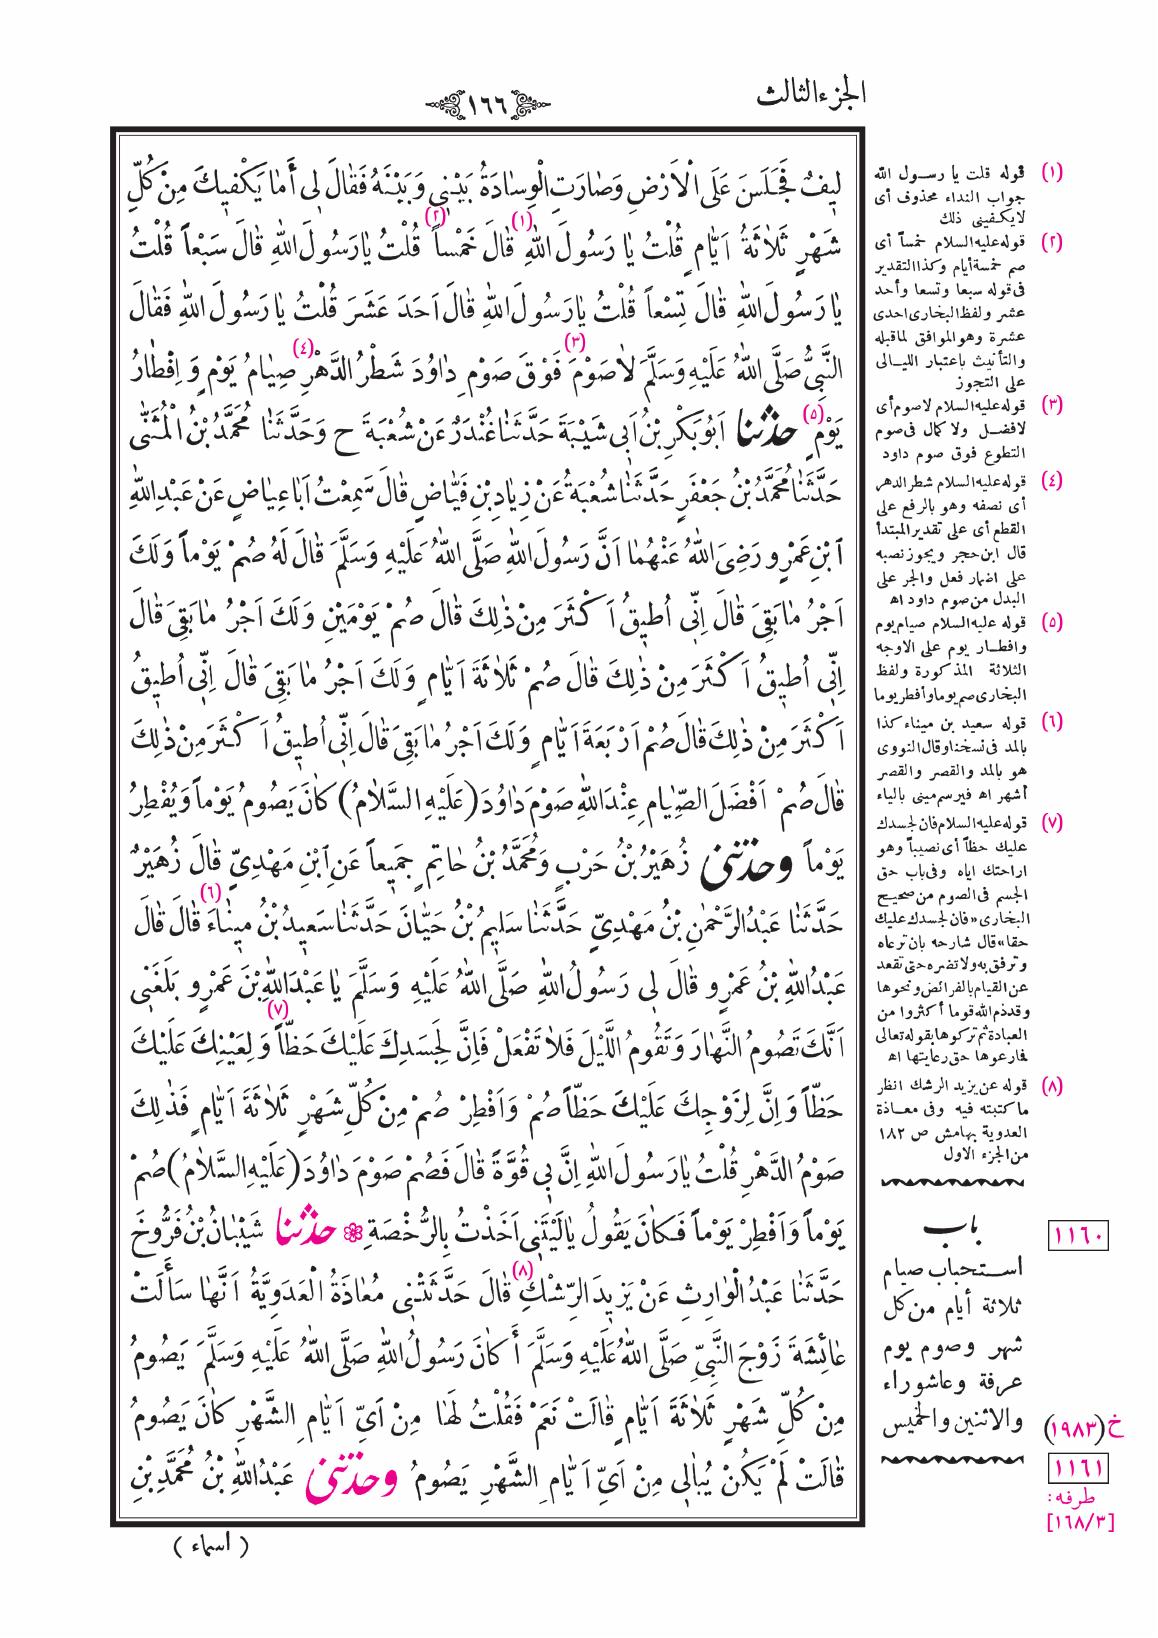 الجزء الثالث
١٦٦
لِيفٌ فَجَلَسَ عَلَى الْاَرْضِ وَصَارَتِ الْوِسَادَةُ بَيْنِي وَبَيْنَهُ فَقَالَ لِي أَمَا يَكْفِيكَ مِنْ كُلِّ
شَهْرٍ ثَلَاثَةُ اَيَّامٍ قُلْتُ يَا رَسُولَ اللهِ (١) قَالَ خَمْساً (٢) قُلْتُ يَارَسُولَ اللهِ قَالَ سَبْعاً قُلْتُ
يَا رَسُولَ اللهِ قَالَ تِسْعاً قُلْتُ يَارَسُولَ اللهِ قَالَ اَحَدَ عَشَرَ قُلْتُ يَا رَسُولَ اللهِ فَقَالَ
النَّبِيُّ صَلَّى اللهُ عَلَيْهِ وَسَلَّمَ لَاصَوْمَ (٣) فَوْقَ صَوْمِ دَاوُدَ شَطْرُ الدَّهْرِ (٤) صِيَامُ يَوْمٍ وَ اِفْطَارُ
يَوْمٍ (٥) حدثنا اَبُو بَكْرِ بْنُ اَبِي شَيْبَةَ حَدَّثَنَا غُنْدَرٌ عَنْ شُعْبَةَ ح وَحَدَّثَنَا مُحَمَّدُ بْنُ الْمُثَنَّى
حَدَّثَنَا مُحَمَّدُ بْنُ جَعْفَرٍ حَدَّثَنَا شُعْبَةُ عَنْ زِيَادِ بْنِ فَيَّاضٍ قَالَ سَمِعْتُ اَبَا عِيَاضٍ عَنْ عَبْدِ اللهِ
ابْنِ عَمْرٍو رَضِيَ اللهُ عَنْهُمَا اَنَّ رَسُولَ اللهِ صَلَّى اللهُ عَلَيْهِ وَسَلَّمَ قَالَ لَهُ صُمْ يَوْماً وَلَكَ
اَجْرُ مَا بَقِيَ قَالَ اِنِّي اُطِيقُ اَكْثَرَ مِنْ ذٰلِكَ قَالَ صُمْ يَوْمَيْنِ وَلَكَ اَجْرُ مَا بَقِيَ قَالَ
اِنِّي اُطِيقُ اَكْثَرَ مِنْ ذٰلِكَ قَالَ صُمْ ثَلَاثَةَ اَيَّامٍ وَلَكَ اَجْرُ مَا بَقِيَ قَالَ اِنِّي اُطِيقُ
اَكْثَرَ مِنْ ذٰلِكَ قَالَ صُمْ اَرْبَعَةَ اَيَّامٍ وَلَكَ اَجْرُ مَا بَقِيَ قَالَ اِنِّي اُطِيقُ اَكْثَرَ مِنْ ذٰلِكَ
قَالَ صُمْ اَفْضَلَ الصِّيَامِ عِنْدَ اللهِ صَوْمَ دَاوُدَ (عَلَيْهِ السَّلَامُ) كَانَ يَصُومُ يَوْماً وَيُفْطِرُ
يَوْماً وحدثني زُهَيْرُ بْنُ حَرْبٍ وَمُحَمَّدُ بْنُ حَاتِمٍ جَمِيعاً عَنِ ابْنِ مَهْدِيٍّ قَالَ زُهَيْرٌ
حَدَّثَنَا عَبْدُ الرَّحْمٰنِ بْنُ مَهْدِيٍّ حَدَّثَنَا سَلِيمُ بْنُ حَيَّانَ حَدَّثَنَا سَعِيدُ بْنُ مِينَاءَ (٦) قَالَ قَالَ
عَبْدُ اللهِ بْنُ عَمْرٍو قَالَ لِي رَسُولُ اللهِ صَلَّى اللهُ عَلَيْهِ وَسَلَّمَ يَا عَبْدَ اللهِ بْنَ عَمْرٍو بَلَغَنِي
اَنَّكَ تَصُومُ النَّهَارَ وَتَقُومُ اللَّيْلَ فَلَا تَفْعَلْ فَاِنَّ لِجَسَدِكَ عَلَيْكَ حَظّاً (٧) وَ لِعَيْنِكَ عَلَيْكَ
حَظّاً وَ اِنَّ لِزَوْجِكَ عَلَيْكَ حَظّاً صُمْ وَاَفْطِرْ صُمْ مِنْ كُلِّ شَهْرٍ ثَلَاثَةَ اَيَّامٍ فَذٰلِكَ
صَوْمُ الدَّهْرِ قُلْتُ يَارَسُولَ اللهِ اِنَّ بِي قُوَّةً قَالَ فَصُمْ صَوْمَ دَاوُدَ (عَلَيْهِ السَّلَامُ) صُمْ
يَوْماً وَ اَفْطِرْ يَوْماً فَكَانَ يَقُولُ يَالَيْتَنِي اَخَذْتُ بِالرُّخْصَةِ حدثنا شَيْبَانُ بْنُ فَرُّوخَ
حَدَّثَنَا عَبْدُ الْوَارِثِ عَنْ يَزِيدَ الرِّشْكِ (٨) قَالَ حَدَّثَتْنِي مُعَاذَةُ الْعَدَوِيَّةُ اَنَّهَا سَأَلَتْ
عَائِشَةَ زَوْجَ النَّبِيِّ صَلَّى اللهُ عَلَيْهِ وَسَلَّمَ أَكَانَ رَسُولُ اللهِ صَلَّى اللهُ عَلَيْهِ وَسَلَّمَ يَصُومُ
مِنْ كُلِّ شَهْرٍ ثَلَاثَةَ اَيَّامٍ قَالَتْ نَعَمْ فَقُلْتُ لَهَا مِنْ اَيِّ اَيَّامِ الشَّهْرِ كَانَ يَصُومُ
قَالَتْ لَمْ يَكُنْ يُبَالِي مِنْ اَيِّ اَيَّامِ الشَّهْرِ يَصُومُ وحدثني عَبْدُ اللهِ بْنُ مُحَمَّدِ بْنِ
( أسماء )
(١) قوله قلت يا رسول الله
جواب النداء محذوف أى
لا يكفينى ذلك
(٢) قوله عليه السلام خمساً أى
صم خمسة أيام وكذا التقدير
فى قوله سبعا وتسعا وأحد
عشر ولفظ البخارى احدى
عشرة وهو الموافق لما قبله
والتأنيث باعتبار الليالى
على التجوز
(٣) قوله عليه السلام لا صوم أى
لا فضل ولا كمال فى صوم
التطوع فوق صوم داود
(٤) قوله عليه السلام شطر الدهر
أى نصفه وهو بالرفع على
القطع أى على تقدير المبتدأ
قال ابن حجر ويجوز نصبه
على اضمار فعل والجر على
البدل من صوم داود اه
(٥) قوله عليه السلام صيام يوم
وافطار يوم على الاوجه
الثلاثة المذكورة ولفظ
البخارى صم يوما وأفطر يوما
(٦) قوله سعيد بن ميناء كذا
بالمد فى نسخنا وقال النووى
هو بالمد والقصر والقصر
أشهر اه فيرسم مينى بالياء
(٧) قوله عليه السلام فان لجسدك
عليك حظاً أى نصيباً وهو
اراحتك اياه وفى باب حق
الجسم فى الصوم من صحيح
البخارى «فان لجسدك عليك
حقا» قال شارحه بان ترعاه
وترفق به ولا تضره حتى تقعد
عن القيام بالفرائض ونحوها
وقد ذم الله قوما أكثروا من
العبادة ثم تركوها بقوله تعالى
فما رعوها حق رعايتها اه
(٨) قوله عن يزيد الرشك انظر
ما كتبته فيه وفى معاذة
العدوية بهامش ص ١٨٢
من الجزء الاول
١١٦٠
باب
استحباب صيام
ثلاثة أيام من كل
شهر وصوم يوم
عرفة وعاشوراء
والاثنين والخميس
خ (١٩٨٣)
١١٦١
طرفه:
[١٦٨/٣]